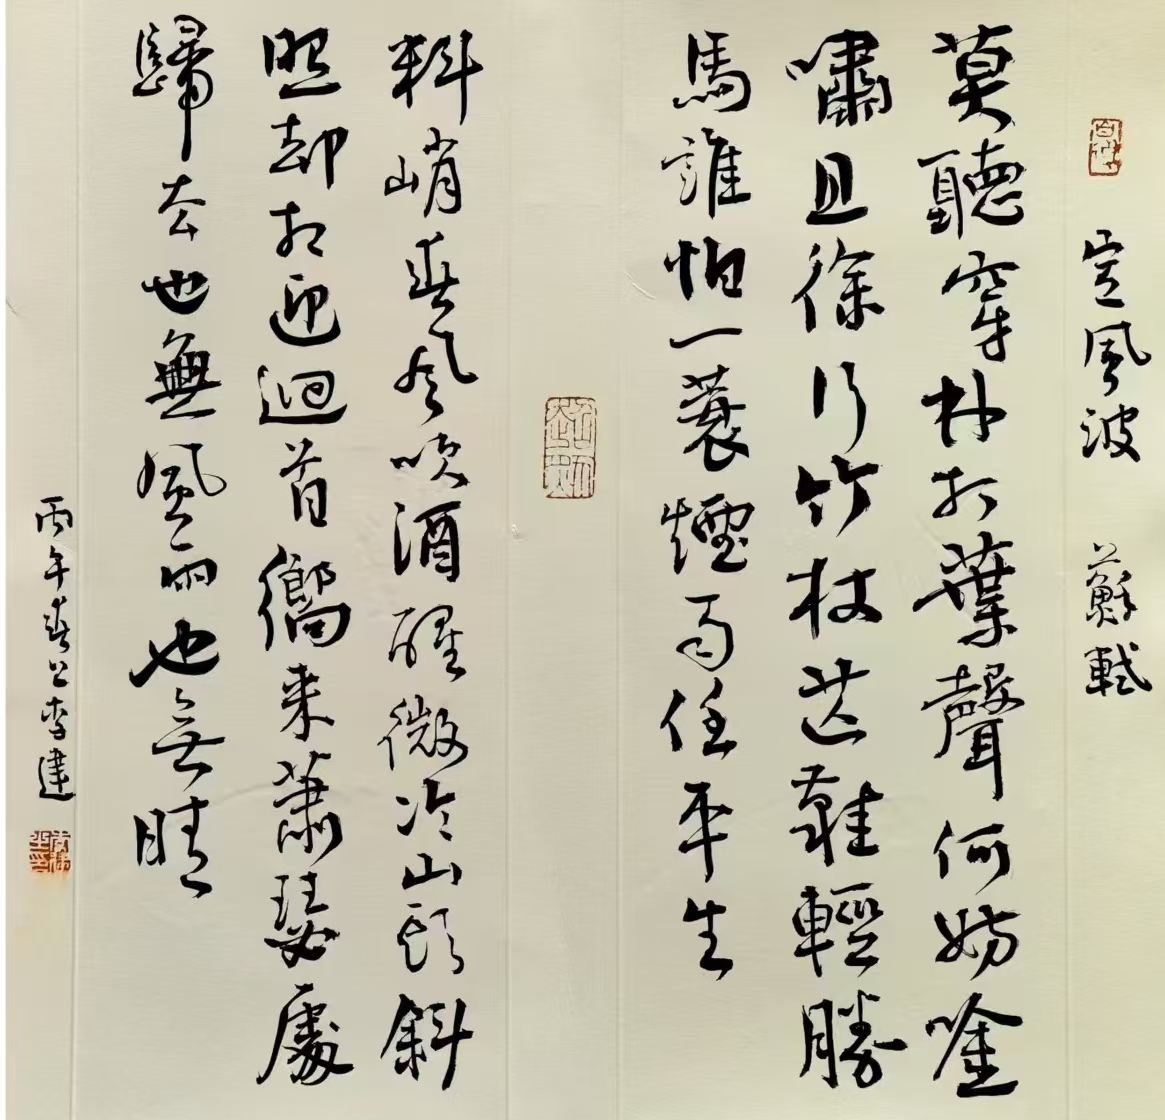 定風波 蘇軾
莫聽穿林打葉聲何妨唫
嘯且徐行竹杖芒鞋輕勝
馬誰怕一蓑煙雨任平生
料峭春風吹酒醒微冷山頭斜
照却相迎迴首嚮来蕭瑟處
歸去也無風雨也無晴
丙午春李建